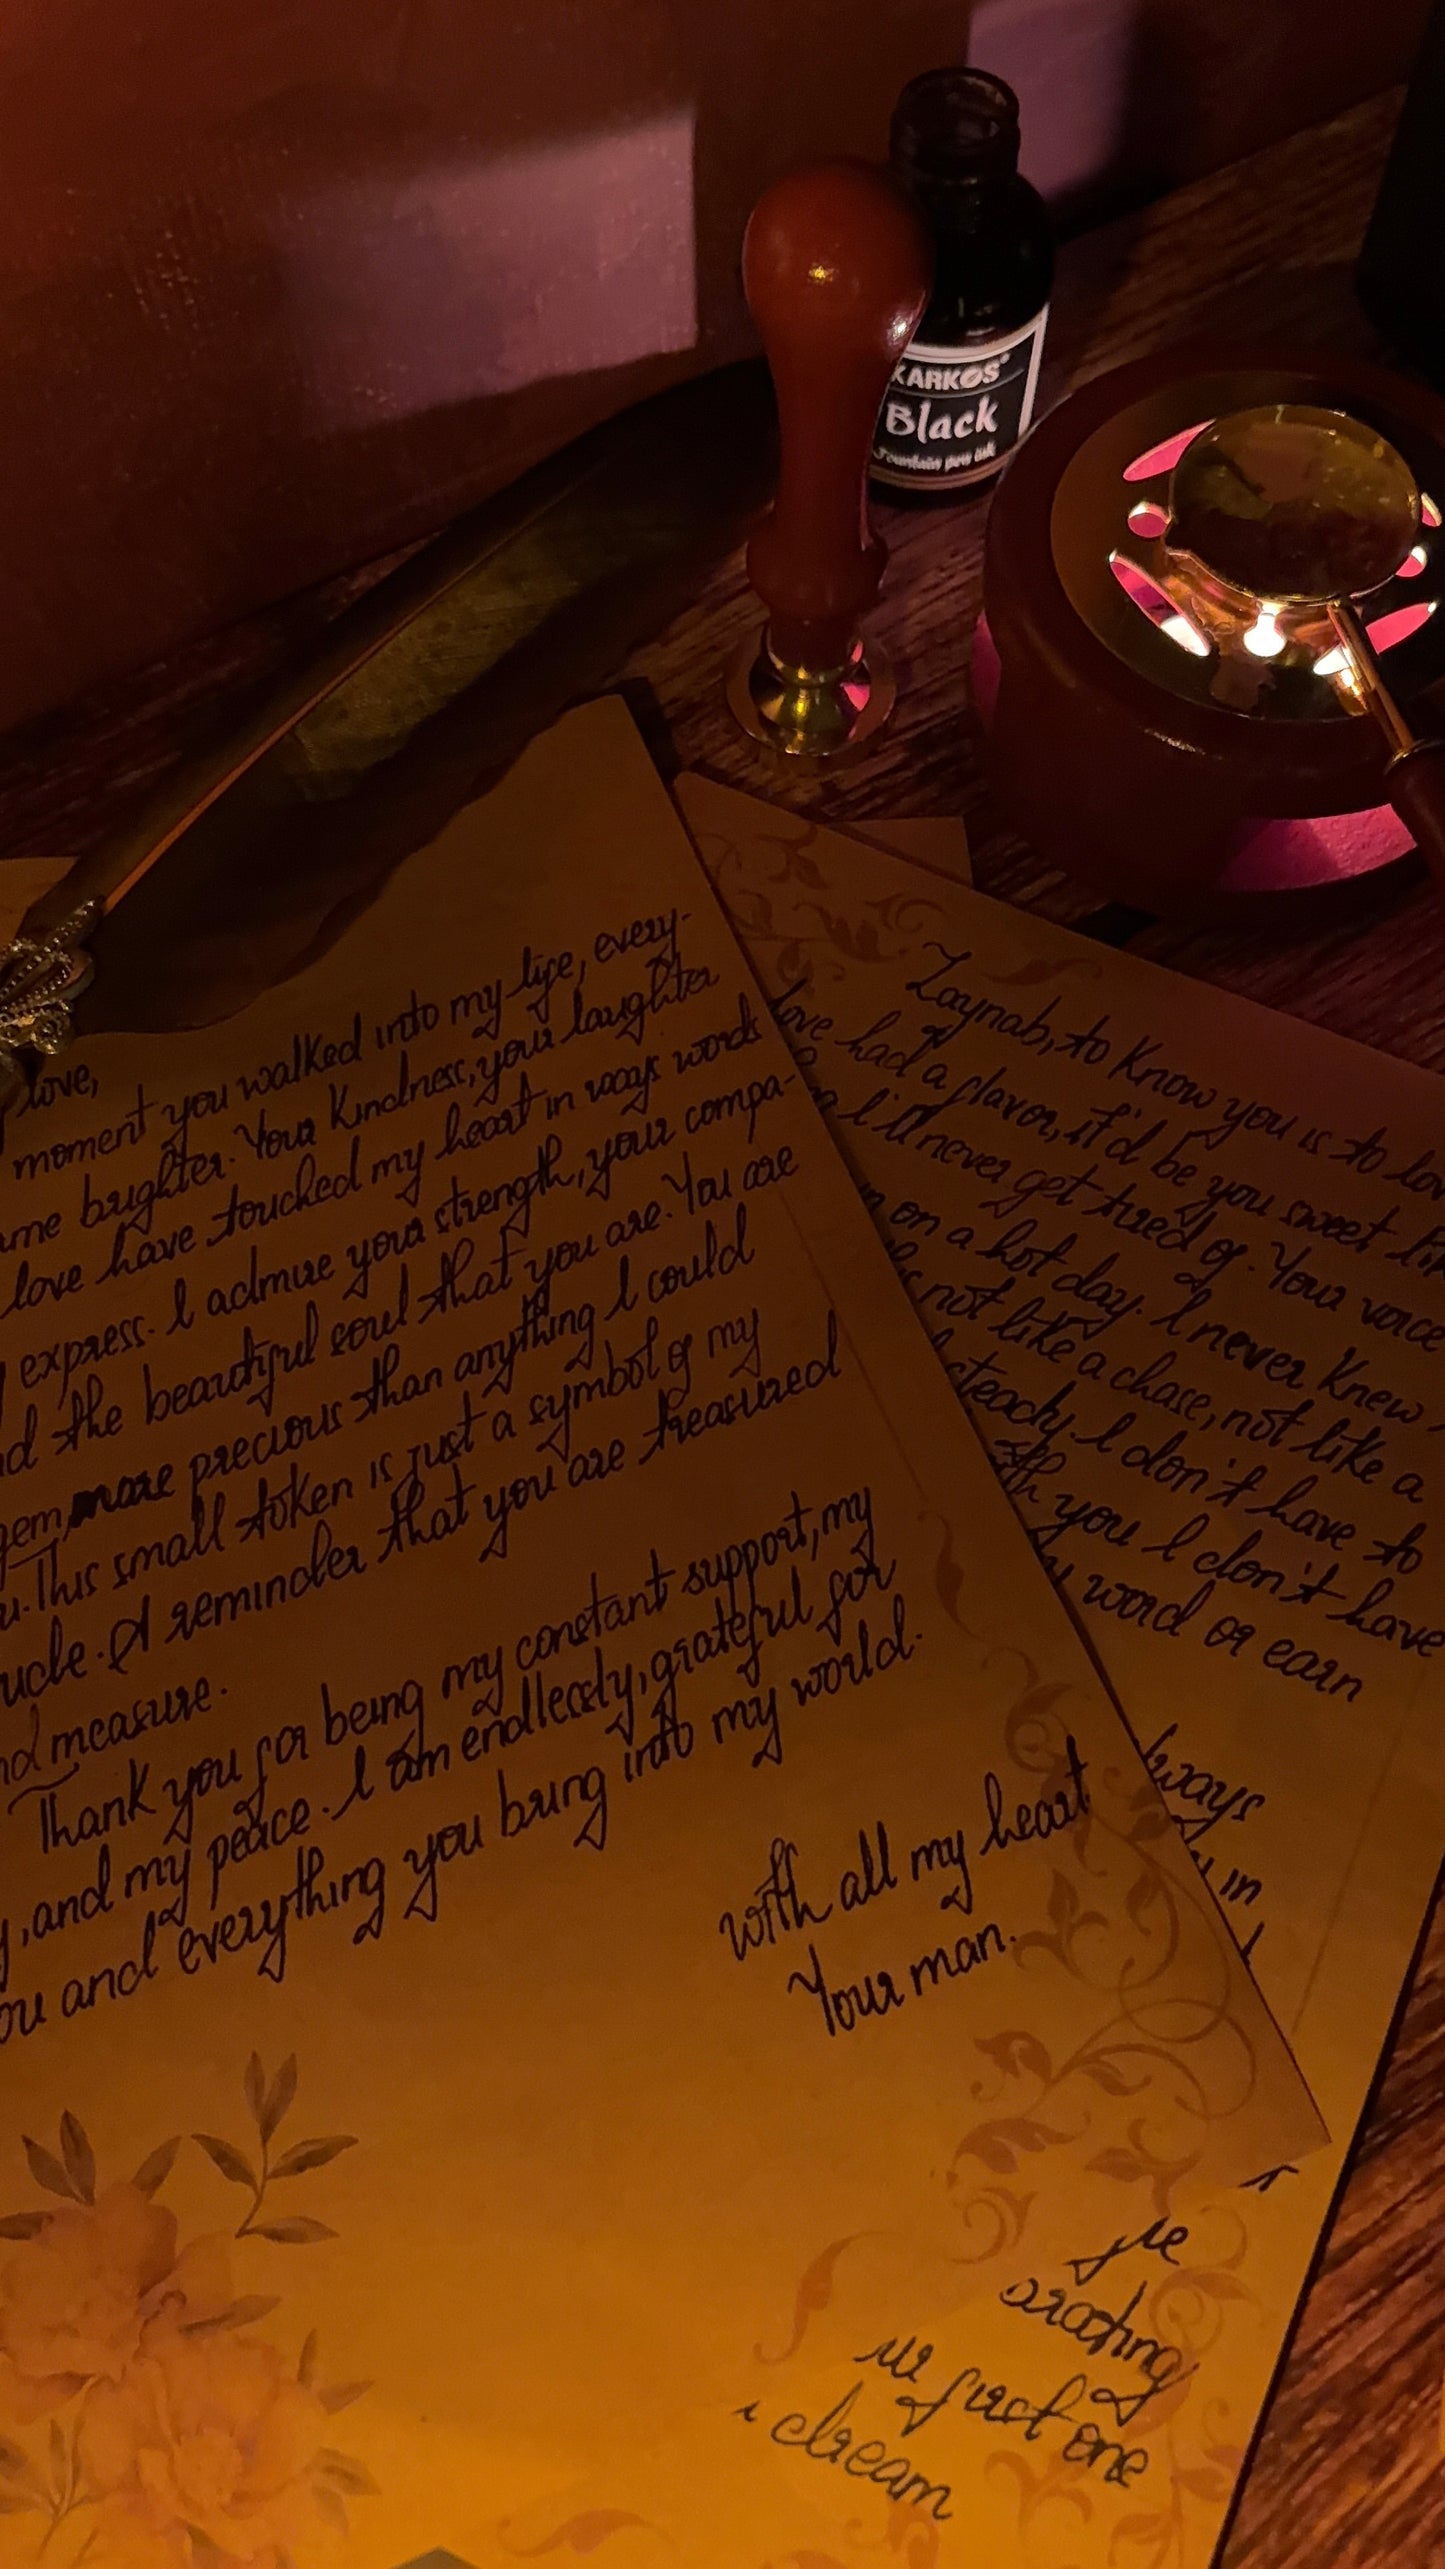 KARKOS
Black
Fountain pen ink
love,
moment you walked into my life, every-
brighter. Your kindness, your laughter
love have touched my heart in ways words
express. I admire your strength, your compa-
the beautiful soul that you are. You are
more precious than anything I could
This small token is just a symbol of my
A reminder that you are treasured
measure.
Thank you for being my constant support, my
, and my peace. I am endlessly, grateful for
and everything you bring into my world.
with all my heart
Your man.
Zaynab, to know you is to
love had a flavor, it'd be you sweet
I'll never get tired of. Your voice
on a hot day. I never knew
not like a chase, not like a
steady. I don't have to
you I don't have
word or earn
in
first one
dream